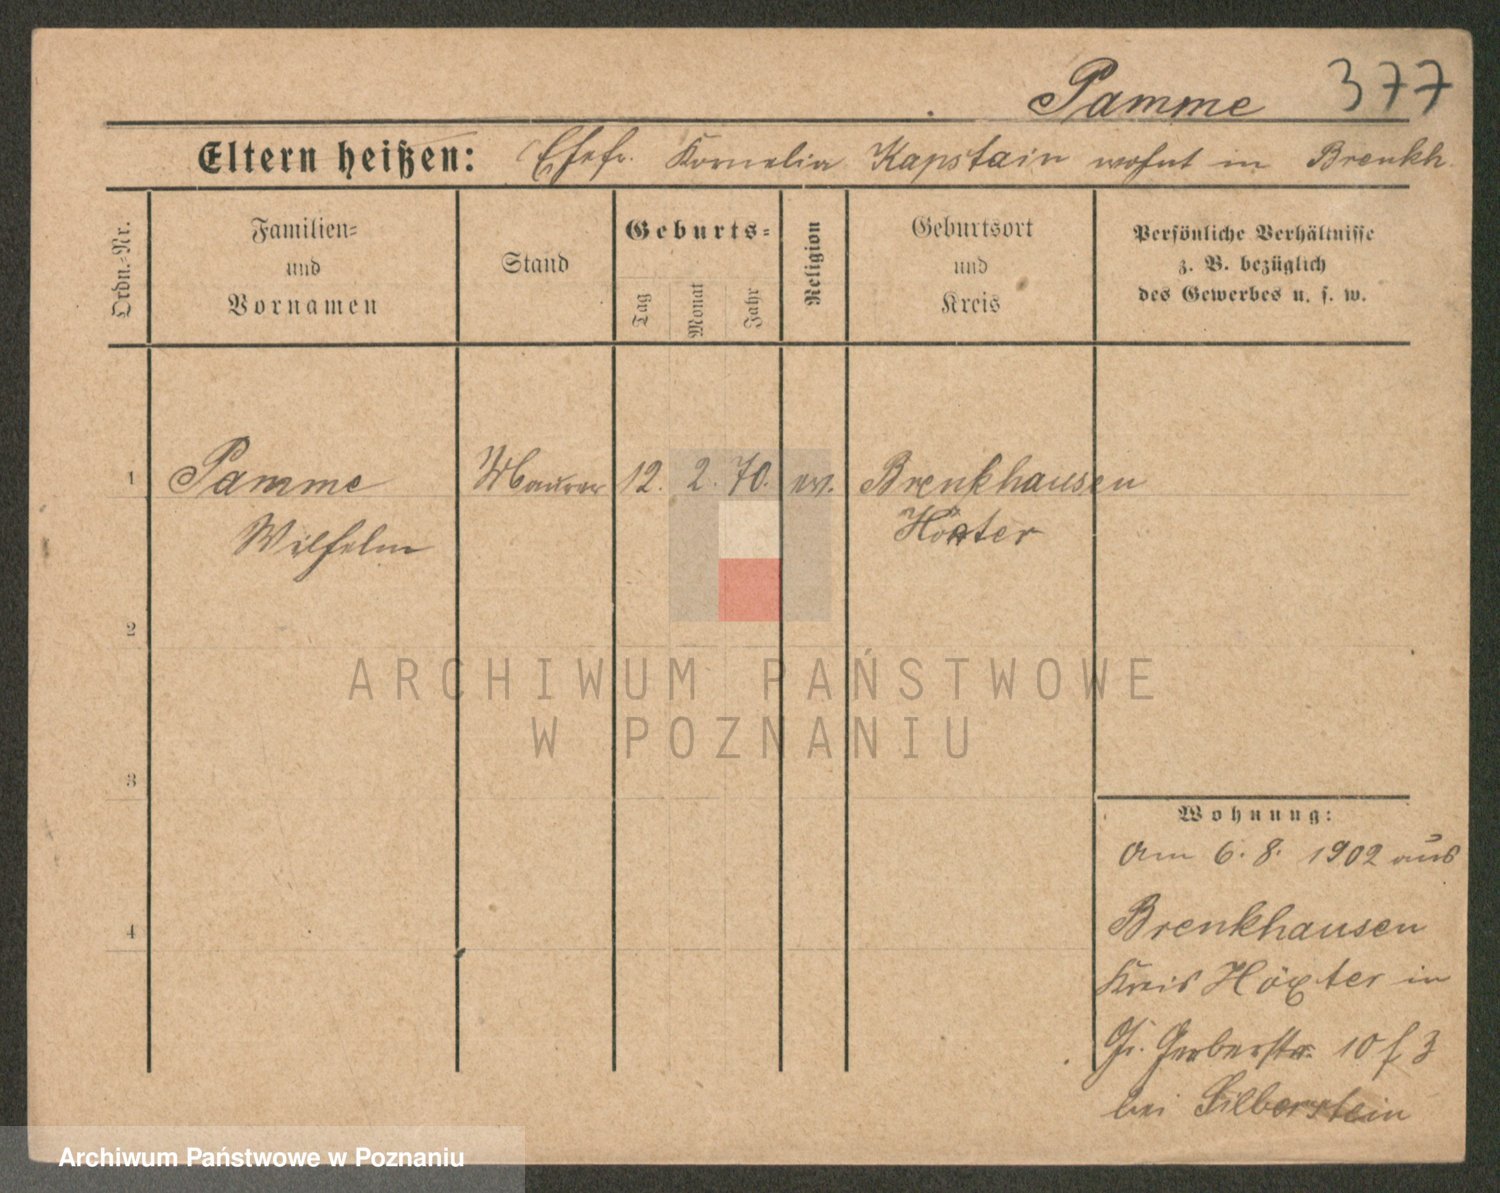 Pamme 377
Eltern heißen: Ehefr. Kornelia Kapstain wohnt in Brenkh.
Ordn.-Nr.
Familien-
und
Vornamen
Stand
Geburts-
Tag
Monat
Jahr
Religion
Geburtsort
und
Kreis
Persönliche Verhältnisse
z. B. bezüglich
des Gewerbes u. s. w.
1 Pamme Maurer 12. 2. 70. ev. Brenkhausen
Wilhelm Höxter
2
3
4
Wohnung:
Am 6. 8. 1902 aus
Brenkhausen
Kreis Höxter in
Gr. Gerberstr. 10
bei Silberstein
ARCHIWUM PAŃSTWOWE
W POZNANIU
Archiwum Państwowe w Poznaniu